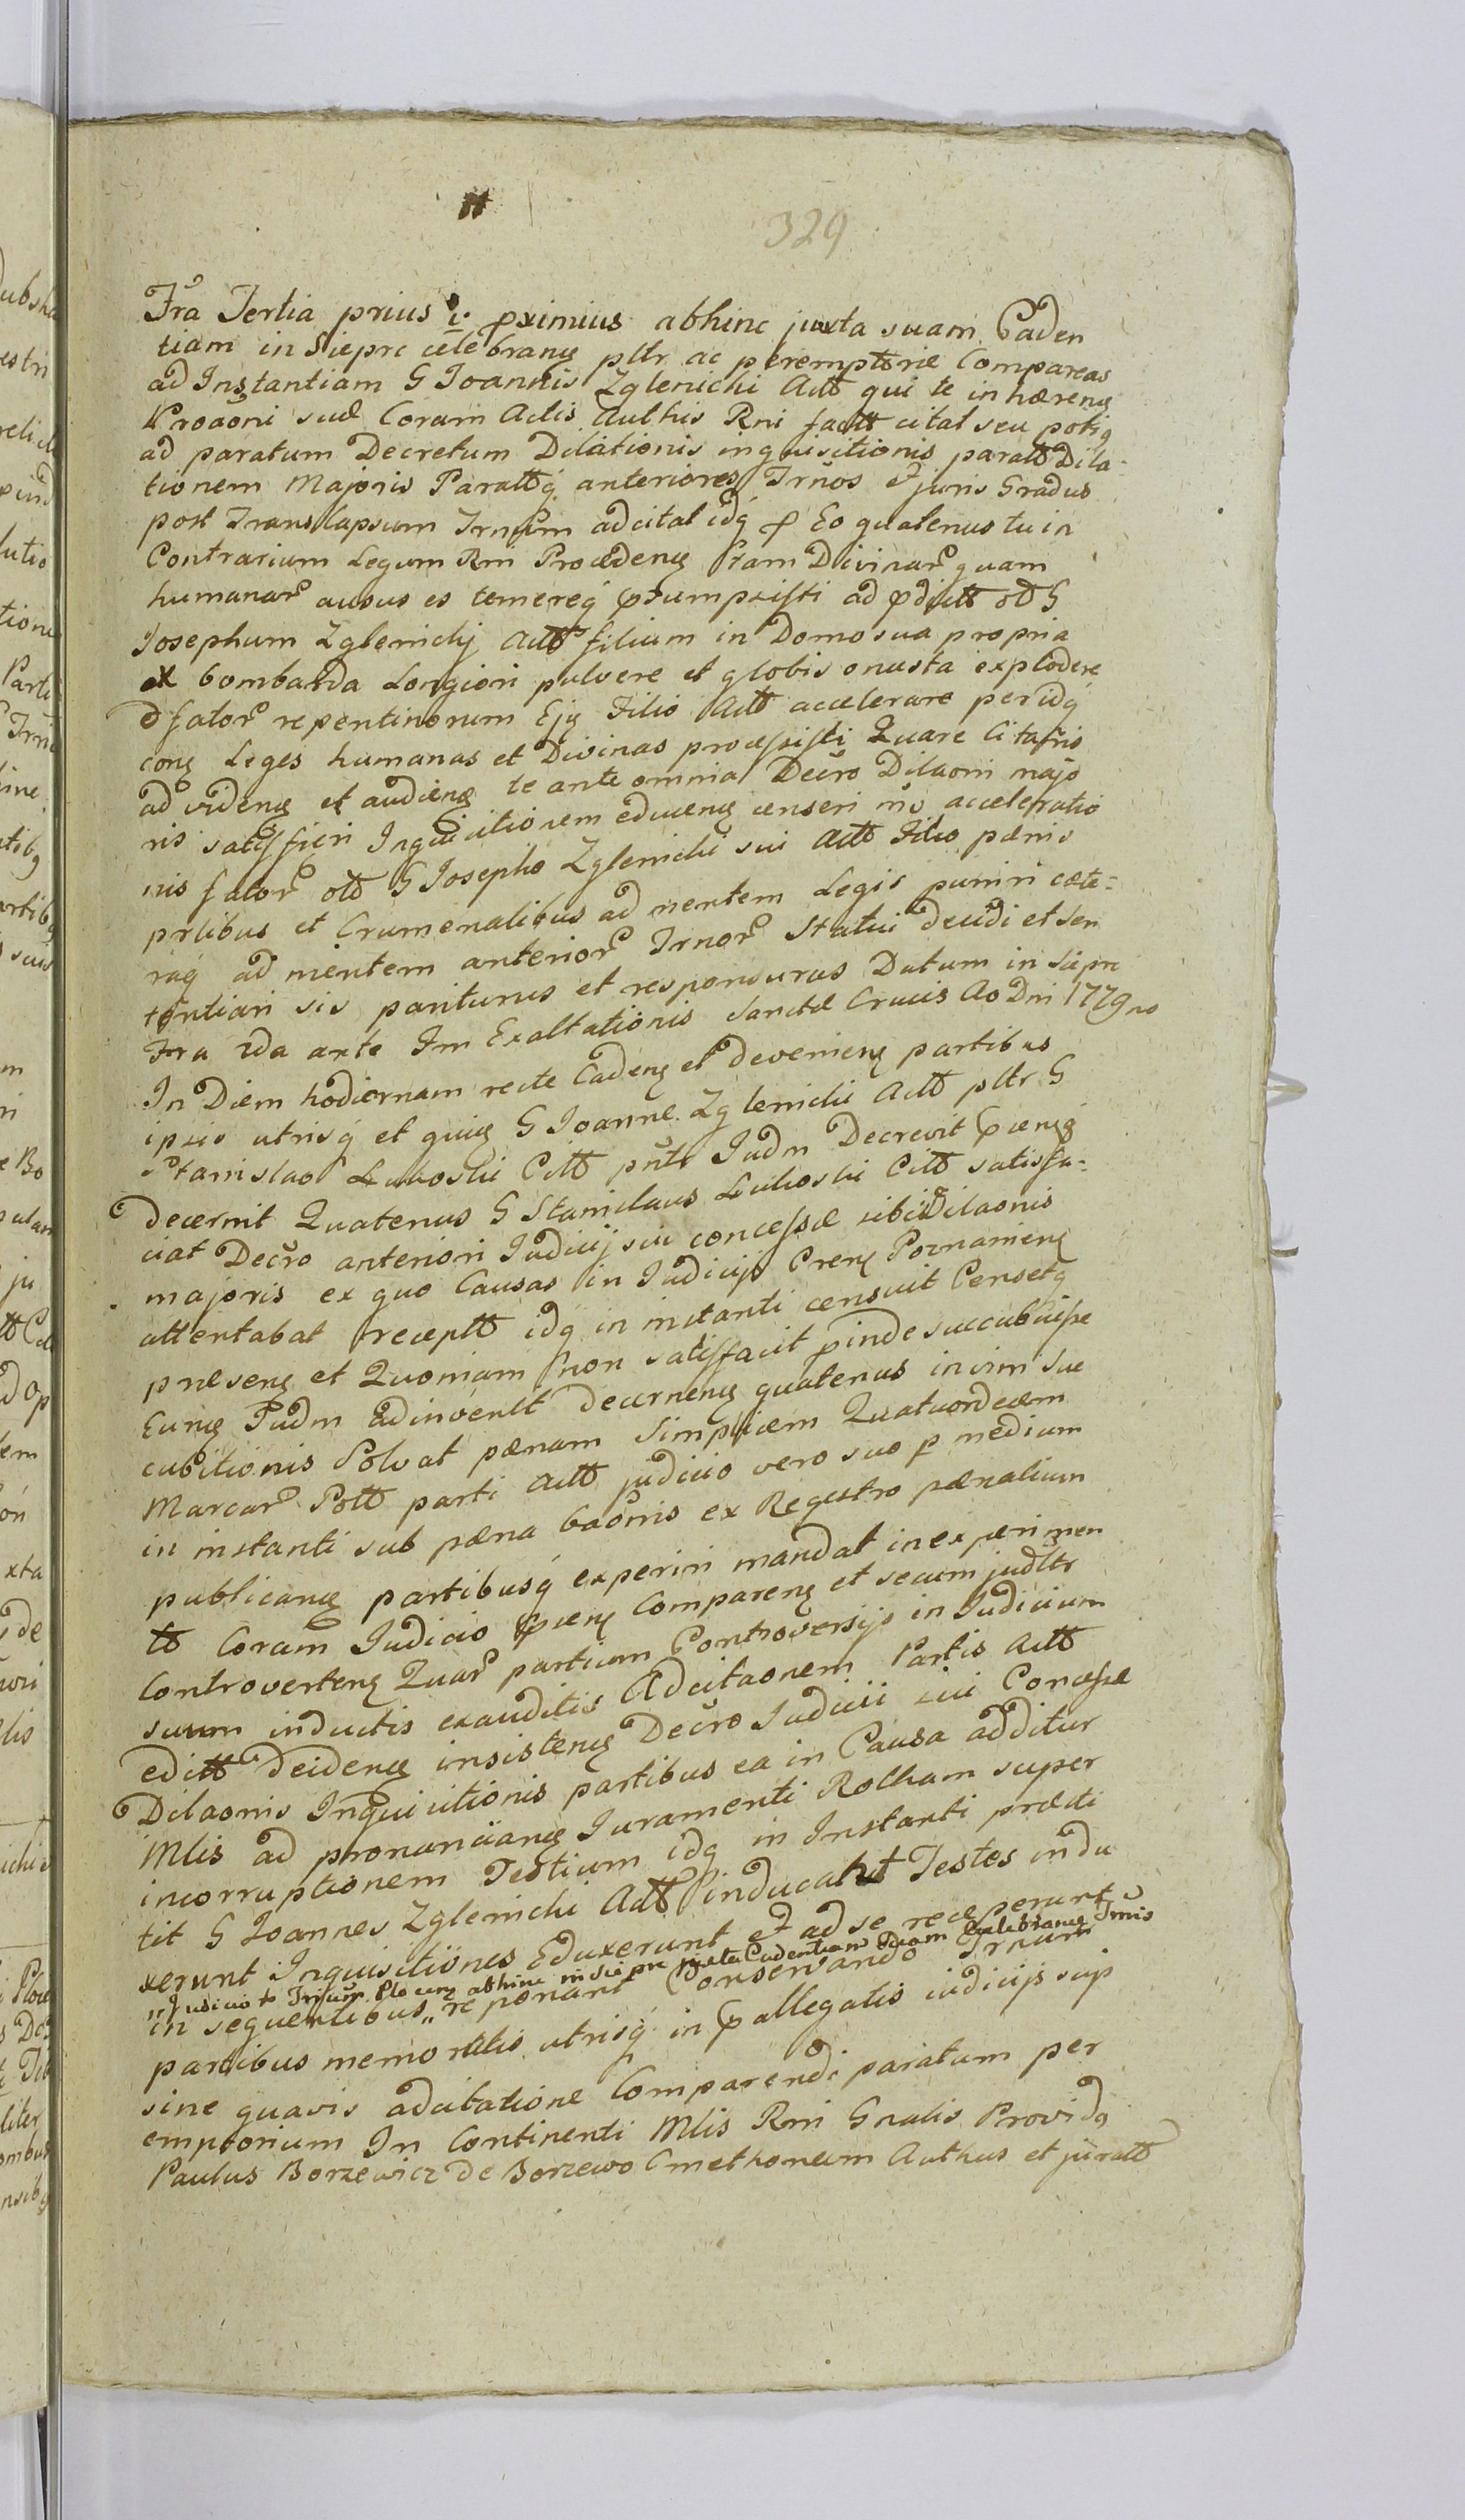 329
Fra Tertia prius v. pximius abhinc juxta suam Caden
tiam in Siepre celebrang pltr ac peremptorie Compareas
ad Instantiam G Joannis Zglenichi Actt qui te inhæreng
Proaoni suæ Coram Actis Authis Rni factt citat seu potig
ad paratum Decretum Dilationis inquisitionis paratt Dila-
tionem Majoris Parattq anteriores Trnos et juris Gradus
post Translapsum Trnum adcitat idq p Eo quatenus tu in
Contrarium Legum Rni Procedeng tam Divinar quam
humanar ausus es temereq psumpsisti ad pdictt ott G
Josephum Zglenichj Actt filium in Domo sua propria
ex bombarda Longiori pulvere et globis onusta explodere
fator repentinorum Ejg Filio Actt accelerare per idq
cong Leges humanas et Divinas processisti Quare Citaris
ad videng et audieng te ante omnia Decro Dilaoni majo
ris satisfieri Inquisitionem educeng censeri no acceleratio
nis fator ott G Josepho Zglenichi sui Actt Filio pænis
prlibus et Crumenalibus ad mentem Legis puniri cæte-
raq ad mentem anterior Trnor Statui decidi et Sen
tentiari sis pariturus et responsurus Datum in Siepre
Fra 2da ante Fm Exaltationis Sanctæ Crucis Ao Dni 1779no
In Diem hodiernam recte Cadeng et Devenieng partibus
ipsis utrisq et quig G Joanne Zglenichi Actt pltr G
Stanislao Lukoski Citt pntr Judm Decrevit pcengq
Decernit Quatenus G Stanislaus Lukoski Citt satisfa-
ciat Decro anteriori Judicij sui concessæ sibi Dilaonis
majoris ex quo Causas in Judicijs Creng Poznanieng
attentabat receptt idq in instanti censuit Censetq
præseng et Quoniam non satisfacit pinde succubuisse
Eung Judm adinvenlt decerneng quatenus in vim Suc
cubitionis Solvat pænam Simplicem Quatuordecem
Marcar Pott parti Actt judicio vero suo p medium
in instanti sub pæna baonis ex Regestro pænalium
publicang partibusq experiri mandat in experimen
tt Coram Judicio pceng Compareng et secum judltr
Controverteng Quar partium Controversijs in Judicium
suum inductis exauditis Adcitaonem Partis Actt
editt Deideng insisteng Decro Judicii sui Concessæ
Dilaonis Inquisitionis partibus ea in Causa additur
Mlis ad pronunciang Juramenti Rotham super
incorruptionem Testium idq in Instanti præsti
tit G Joannes Zglenichi Actt inducant Testes indu
xerunt Inquisitiones Eduxerunt et ad se receperunt
"Judicio to Trium Ploceng abhinc in Siepre juxta Cadentiam Suam celebrang Trnis
in sequentibus " reponant Conservando Trnum
partibus memoratis utrisq in p allegatis iudicijs sup
sine quavis adcitatione Comparendi paratum per
emptorium In Continenti Mlis Rni Gnalis Providg
Paulus Borzewicz de Borzewo Cmethoneum Authus et juratt